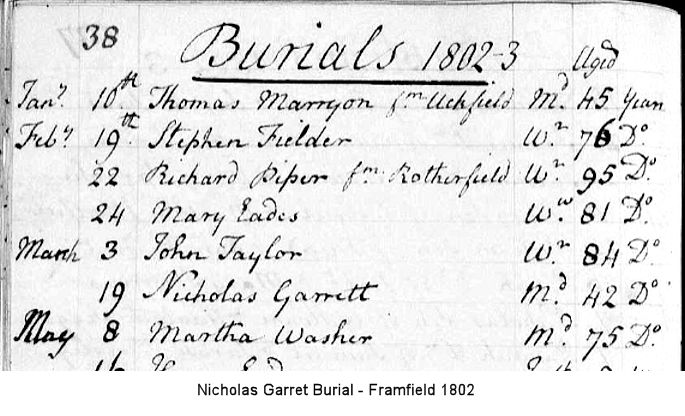 38 Burials 1802-3 Aged
Jany. 10th. Thomas Marryon fm Uckfield Md. 45 Years
Feby. 19th. Stephen Fielder Wr. 76 Do.
22 Richard Piper fm Rotherfield Wr. 95 Do.
24 Mary Eades Ww. 81 Do.
March 3 John Taylor Wr. 84 Do.
19 Nicholas Garrett Md. 42 Do.
May 8 Martha Washer Md. 75 Do.
Nicholas Garret Burial - Framfield 1802